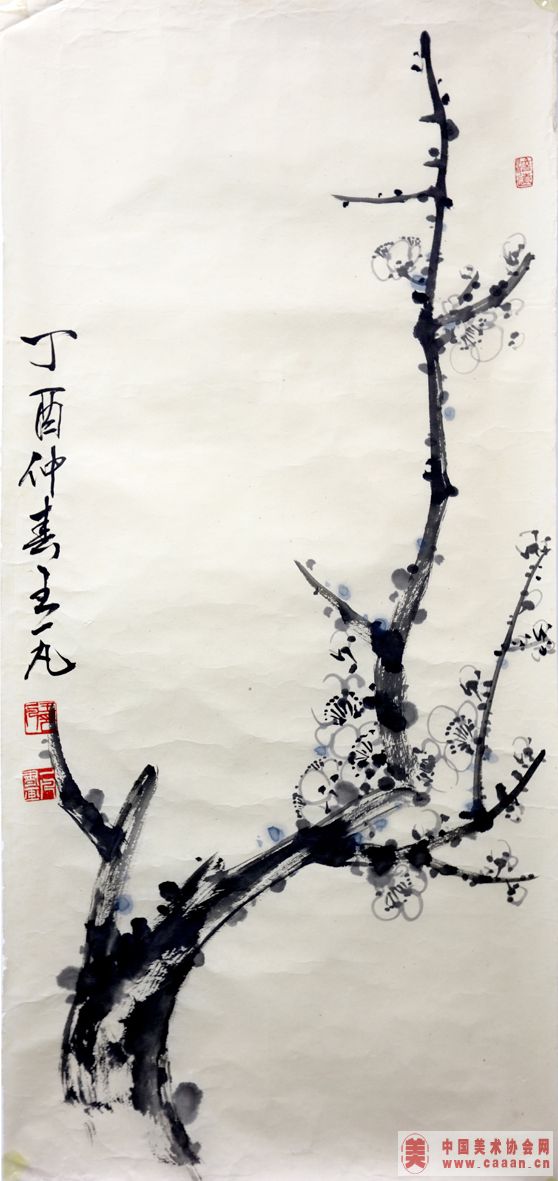 丁酉仲春王一凡
中国美术协会网
www.caaan.cn